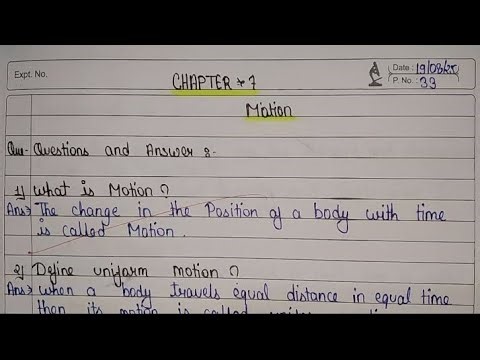 Expt. No.
Date : 19/08/25
P. No. : 33
CHAPTER - 7
Motion
Que:- Questions and Answer :-
1) What is Motion ?
Ans→ The change in the Position of a body with time
is called Motion.
2) Define uniform motion ?
Ans→ When a body travels equal distance in equal time
then its motion is called